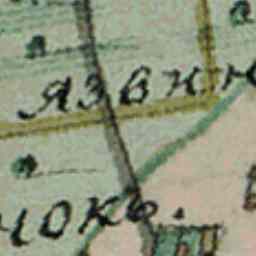 язвин
чокъ.